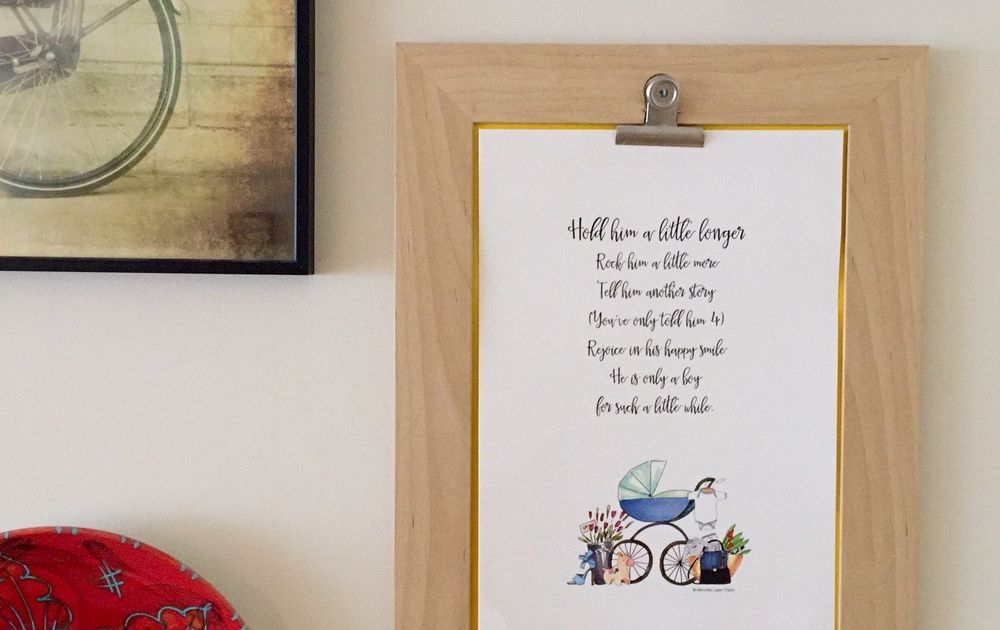 Hold him a little longer
Rock him a little more
Tell him another story
(You've only told him 4)
Rejoice in his happy smile
He is only a boy
for such a little while.